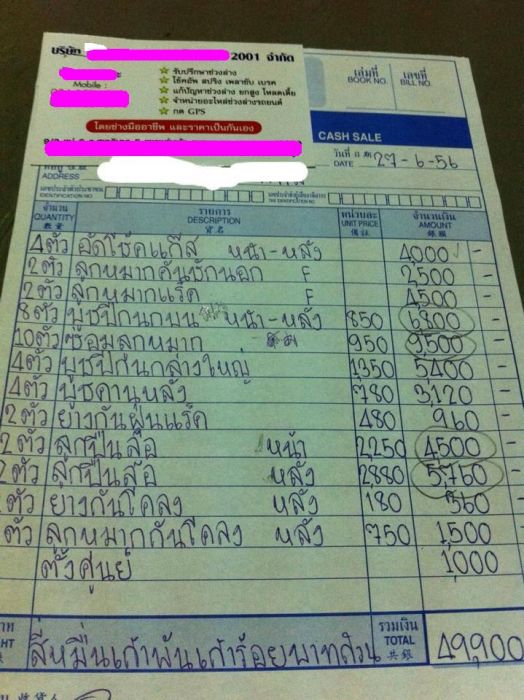 บริษัท 2001 จำกัด
Mobile :
☆ รับปรึกษาช่วงล่าง
☆ โช้คอัพ สปริง เพลาขับ เบรค
☆ แก้ปัญหาช่วงล่าง ยกสูง โหลดเตี้ย
☆ จำหน่ายอะไหล่ช่วงล่างรถยนต์
☆ กด GPS
โดยช่างมืออาชีพ และราคาเป็นกันเอง
เล่มที่ เลขที่
BOOK NO. BILL NO.
CASH SALE
วันที่
DATE 27-6-56
ADDRESS
เลขประจำตัวประชาชน
IDENTIFICATION NO เลขประจำตัวผู้เสียภาษีอากร
จำนวน รายการ หน่วยละ จำนวนเงิน
QUANTITY DESCRIPTION UNIT PRICE AMOUNT
數量 貨名 價銀 銀額
4ตัว อัดโช๊คแก๊ส หน้า-หลัง 4,000 -
2ตัว ลูกหมากคันชักนอก F 2,500 -
2ตัว ลูกหมากแร็ค F 4,500 -
8ตัว บูชปีกนกบน หน้า-หลัง 850 6,800 -
10ตัว ซ่อมลูกหมาก 950 9,500 -
4ตัว บูชปีกนกล่างใหญ่ 1,350 5,400 -
4ตัว บูชคานหลัง 780 3,120 -
2ตัว ยางกันฝุ่นแร็ค 480 960 -
2ตัว ลูกปืนล้อ หน้า 2,250 4,500 -
2ตัว ลูกปืนล้อ หลัง 2,880 5,760 -
ตัว ยางกันโคลง หลัง 180 360 -
ตัว ลูกหมากกันโคลง หลัง 750 1,500
ตั้งศูนย์ 1,000
สี่หมื่นเก้าพันเก้าร้อยบาทถ้วน
รวมเงิน
TOTAL 49,900
共銀